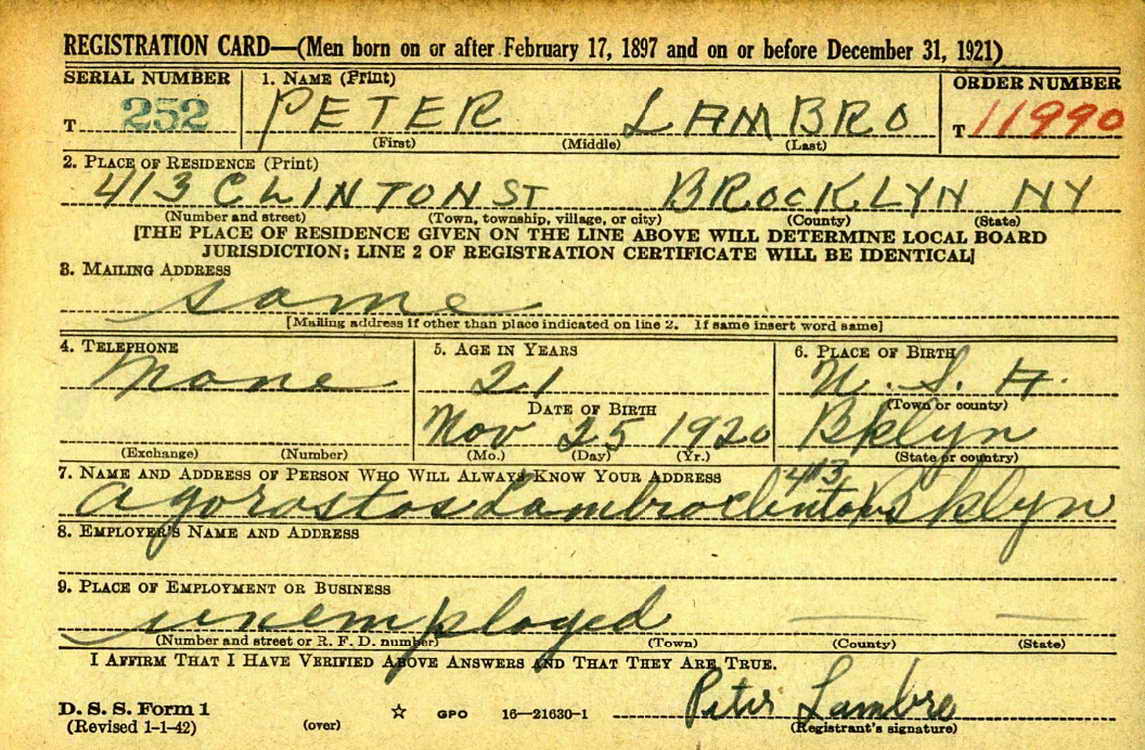 REGISTRATION CARD—(Men born on or after February 17, 1897 and on or before December 31, 1921)
SERIAL NUMBER
1. NAME (Print)
ORDER NUMBER
T 252
PETER LAMBRO
T 11990
(First) (Middle) (Last)
2. PLACE OF RESIDENCE (Print)
413 CLINTON ST BROCKLYN NY
(Number and street) (Town, township, village, or city) (County) (State)
[THE PLACE OF RESIDENCE GIVEN ON THE LINE ABOVE WILL DETERMINE LOCAL BOARD
JURISDICTION; LINE 2 OF REGISTRATION CERTIFICATE WILL BE IDENTICAL]
3. MAILING ADDRESS
same
[Mailing address if other than place indicated on line 2. If same insert word same]
4. TELEPHONE
none
(Exchange) (Number)
5. AGE IN YEARS
21
DATE OF BIRTH
Nov 25 1920
(Mo.) (Day) (Yr.)
6. PLACE OF BIRTH
U. S. A.
(Town or county)
Bklyn
(State or country)
7. NAME AND ADDRESS OF PERSON WHO WILL ALWAYS KNOW YOUR ADDRESS
Agorastos Lambro 413 Bklyn
8. EMPLOYER'S NAME AND ADDRESS
9. PLACE OF EMPLOYMENT OR BUSINESS
unemployed
(Number and street or R. F. D. number) (Town) (County) (State)
I AFFIRM THAT I HAVE VERIFIED ABOVE ANSWERS AND THAT THEY ARE TRUE.
Peter Lambro
D. S. S. Form 1
(Revised 1-1-42) (over) ☆ GPO 16—21630-1
(Registrant's signature)